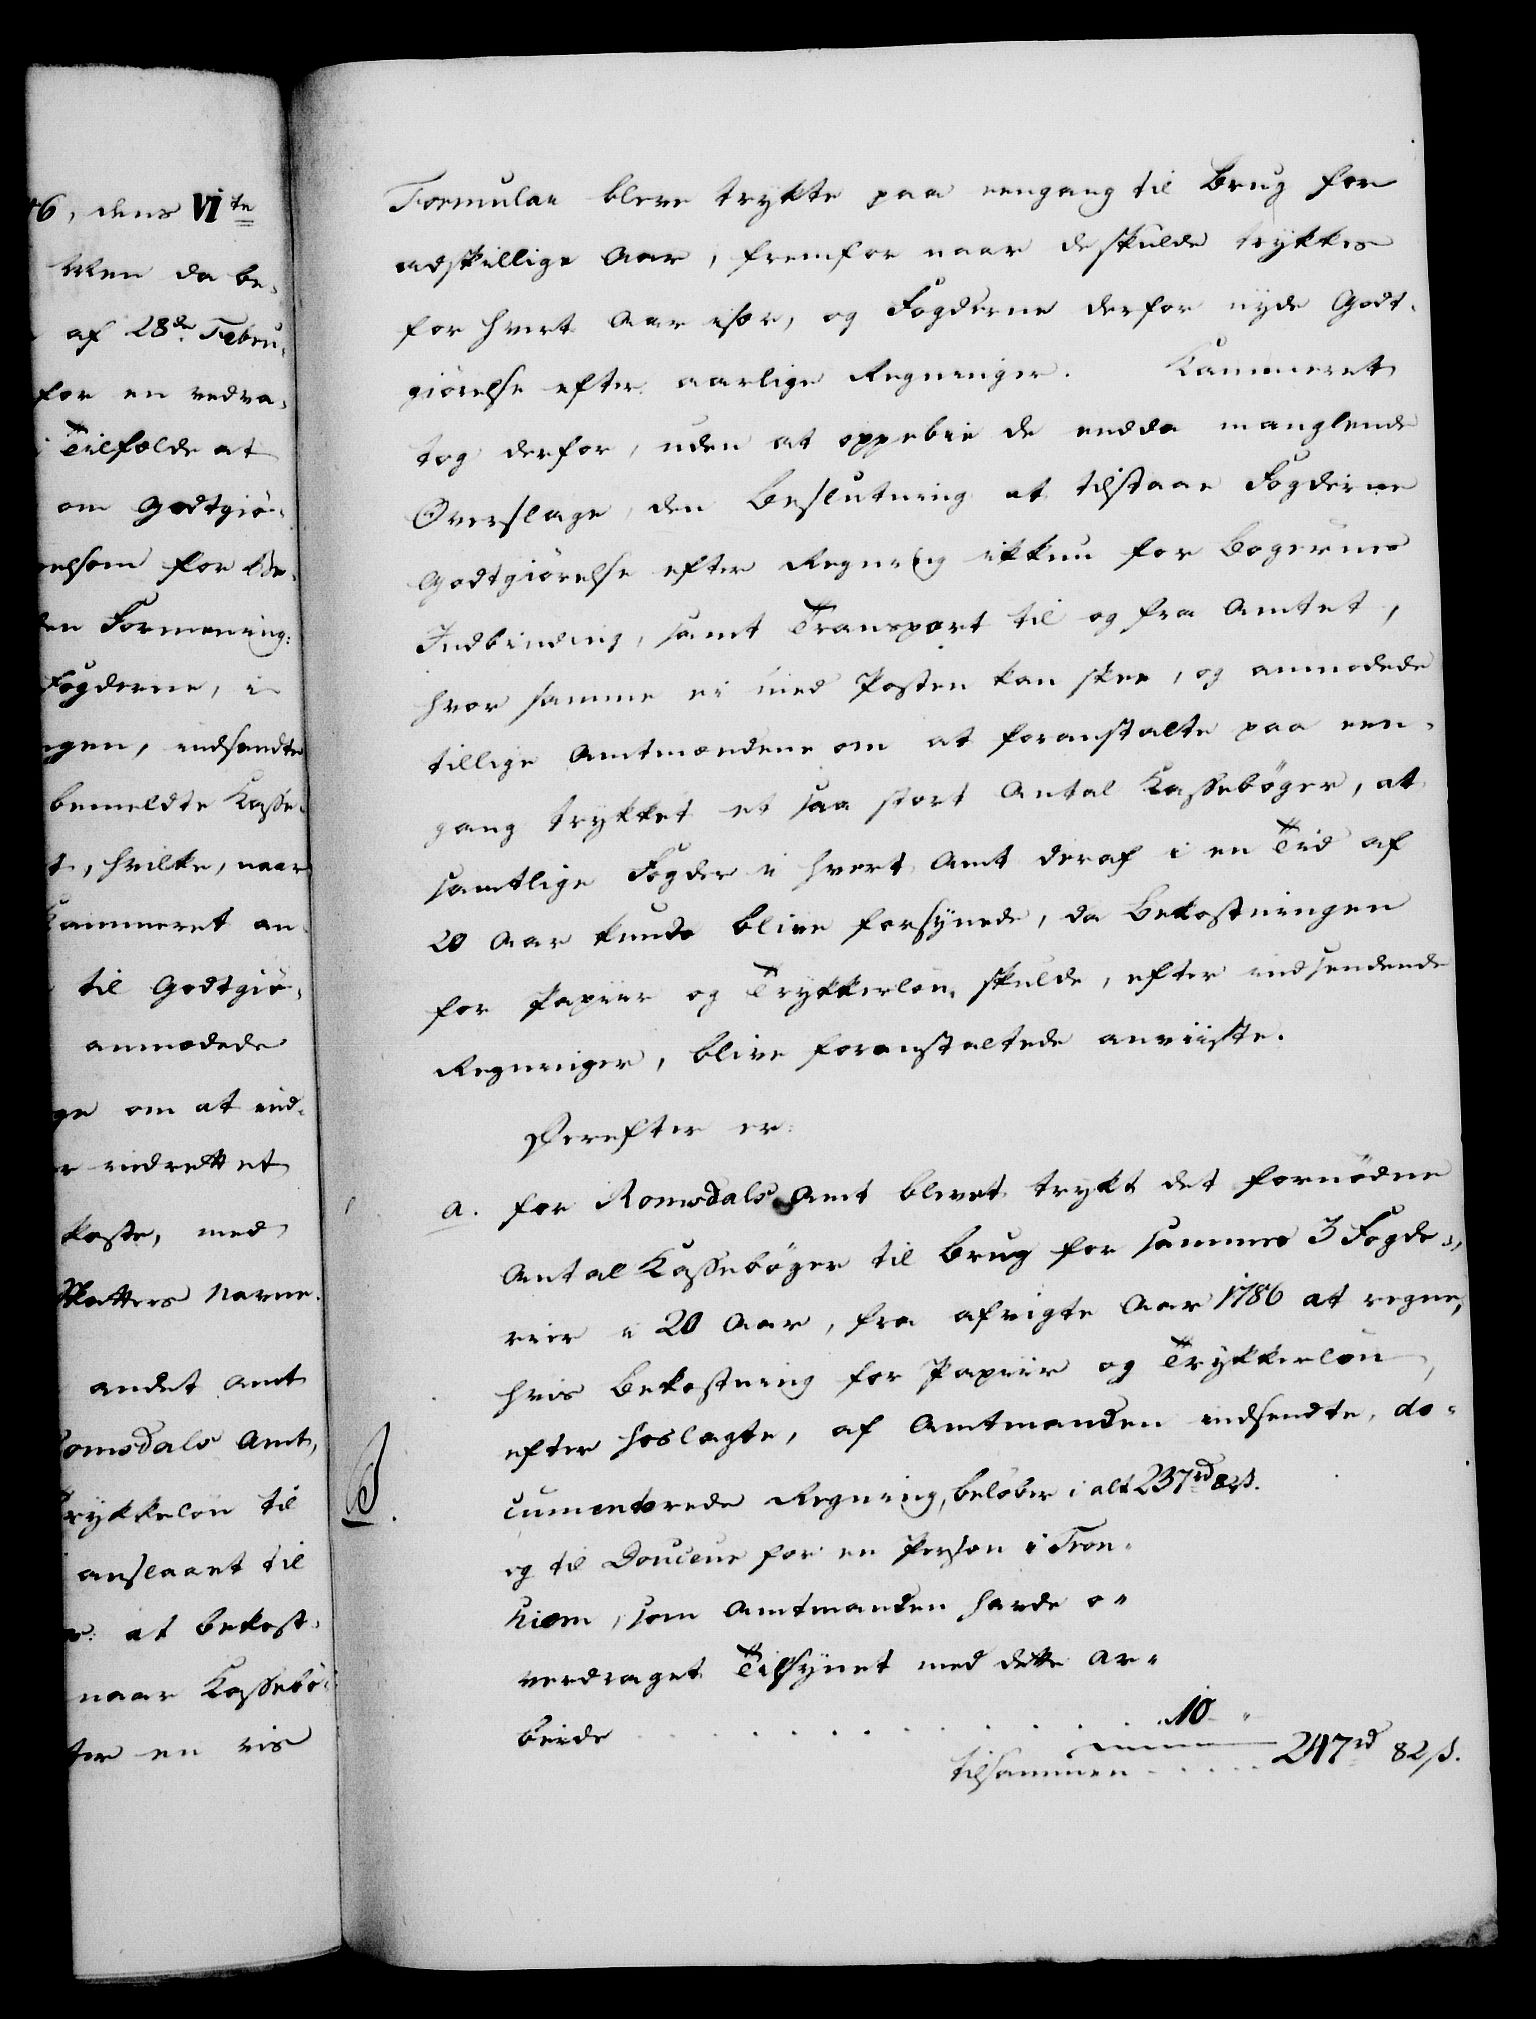 46, dens VIte
Men da be-
af 28de Febru-
for en vedva-
Tilfælde at
om Godtgiö-
relsem for Be-
den Formening:
Fogderne, i
ngen, indsendte
bemeldte Kasse-
t, hvilke, naar
Kammeret an-
til Godtgiö-
anmodede
ge om at ind-
r indrettet
koste, med
Skatters Navne.
andet Amt
Romsdals Amt,
Trykkelön til
anslaaet til
r: at bekost-
naar Kassebö-
ter en vis
Formular bleve trykte paa eengang til Brug for
adskillige Aar, fremfor naar de skulde trykkes
for hvert Aar især, og Fogderne derfor nyde Godt-
giörelse efter aarlige Regninger. Kammeret
tog derfor, uden at oppebie de endda manglende
Overslage, den Beslutning at tilstaae Fogderne
Godtgiörelse efter Regning ikkun for Bogernes
Indbinding, samt Transport til og fra Amtet,
hvor samme ei med Posten kan skee, og anmodede
tillige Amtmændene om at foranstalte paa een-
gang trykket et saa stort Antal Kassebøger, at
samtlige Fogder i hvert Amt deraf i en Tid af
20 Aar kunde blive forsynede, da Bekostningen
for Papiir og Trykkerlön skulde, efter indsendende
Regninger, blive foranstaltede anviiste.
Derefter er:
a. for Romsdals Amt blevet trykt det fornödne
Antal Kassebøger til Brug for sammes 3 Fogde-
rier i 20 Aar, fra afvigte Aar 1786 at regne,
hvis Bekostning for Papiir og Trykkerlön,
efter hoslagte, af Amtmanden indsendte, do-
cumenterede Regning, belöber i alt 237rd 82s.
og til Douceur for en Person i Tron-
hiem, som Amtmanden havde o-
verdraget Tilsynet med dette Ar-
beide . . . . . . . . . . 10 - "
tilsammen . . . . . 247rd 82s.